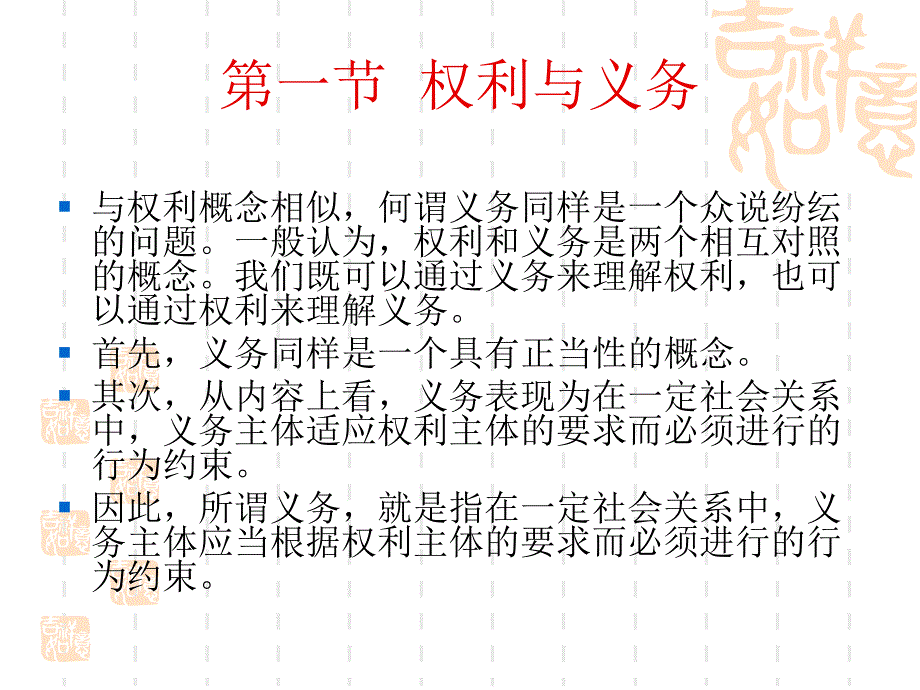 吉祥如意
第一节 权利与义务
与权利概念相似，何谓义务同样是一个众说纷纭
的问题。一般认为，权利和义务是两个相互对照
的概念。我们既可以通过义务来理解权利，也可
以通过权利来理解义务。
首先，义务同样是一个具有正当性的概念。
其次，从内容上看，义务表现为在一定社会关系
中，义务主体适应权利主体的要求而必须进行的
行为约束。
因此，所谓义务，就是指在一定社会关系中，义
务主体应当根据权利主体的要求而必须进行的行
为约束。
吉祥如意
吉祥如意
吉祥如意
吉祥如意
吉祥如意
吉祥如意